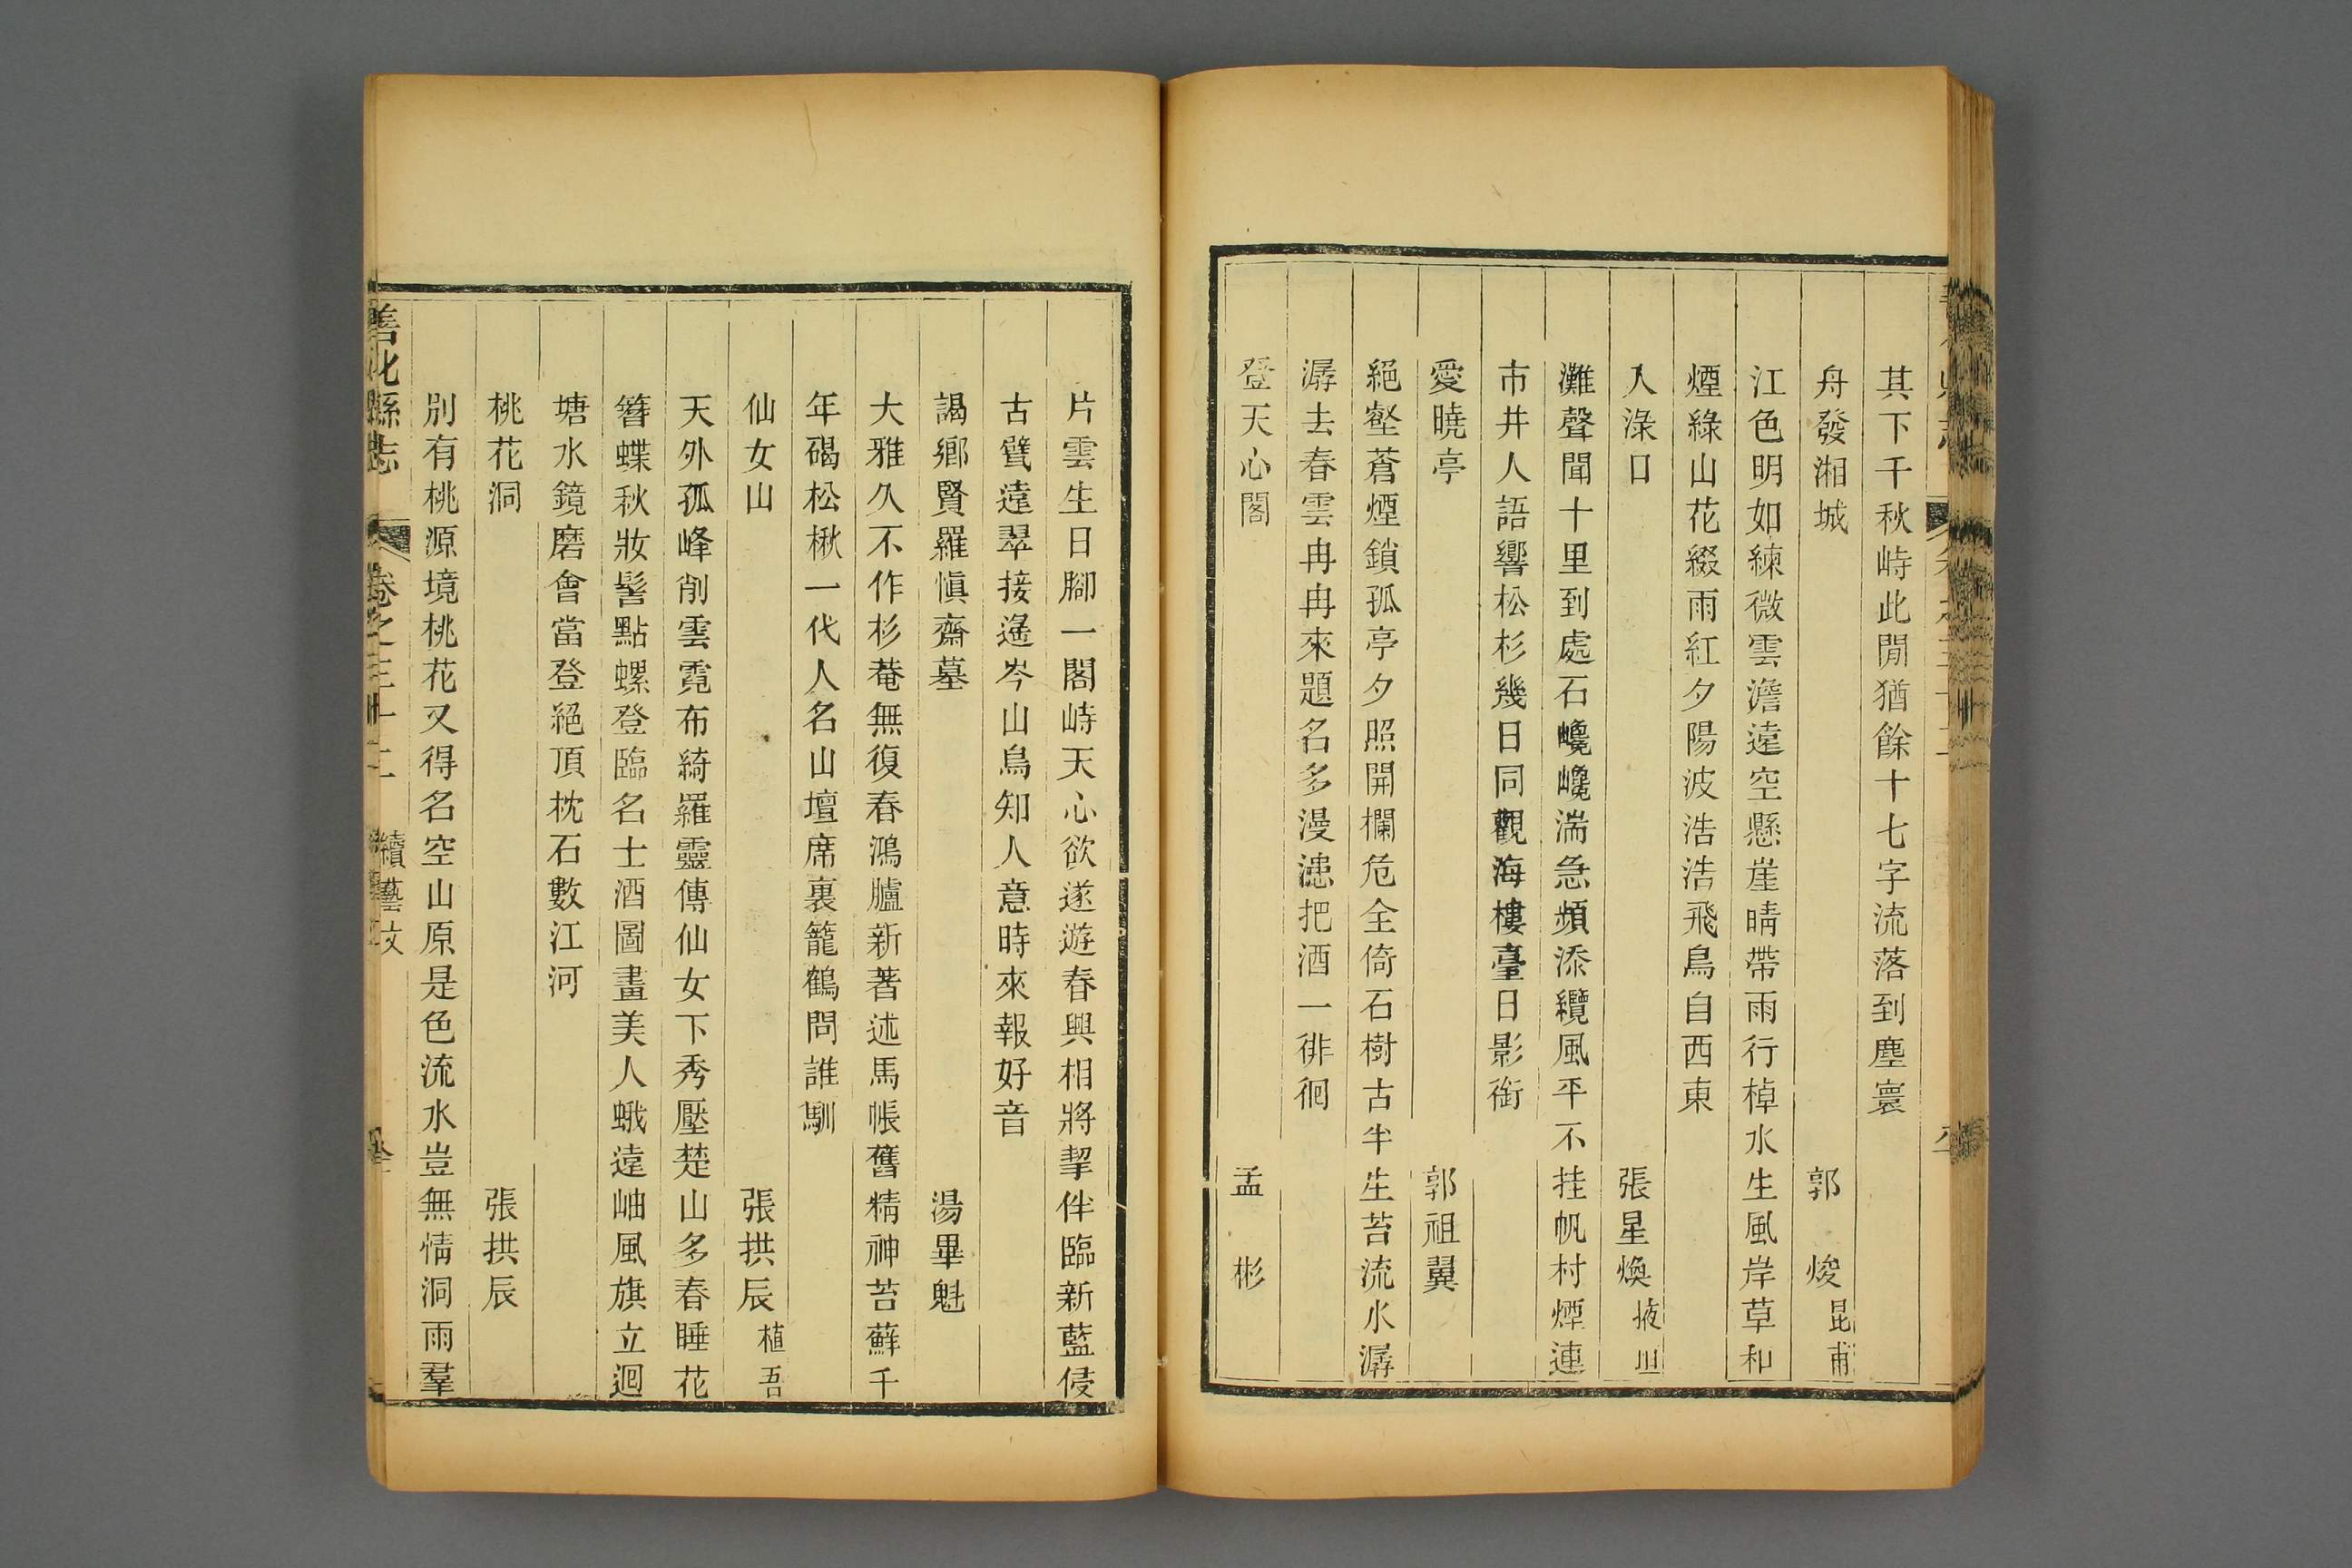 其下千秋峙此閒猶餘十七字流落到塵寰
舟發湘城 郭 焌 昆甫
江色明如練微雲澹遠空懸崖晴帶雨行棹水生風岸草和
煙綠山花綴雨紅夕陽波浩浩飛鳥自西東
入淥口 張星煥 掖垣
灘聲聞十里到處石巉巉湍急頻添纜風平不挂帆村煙連
市井人語響松杉幾日同觀海樓臺日影銜
愛曉亭 郭祖翼
絕壑蒼煙鎖孤亭夕照開欄危全倚石樹古半生苔流水潺
潺去春雲冉冉來題名多漫漶把酒一徘徊
登天心閣 孟 彬
片雲生日腳一閣峙天心欲遂遊春興相將挈伴臨新藍侵
古甓遠翠接遙岑山鳥知人意時來報好音
謁鄉賢羅愼齋墓 湯畢魁
大雅久不作杉菴無復春鴻臚新著述馬帳舊精神苔蘚千
年碣松楸一代人名山壇席裏籠鶴問誰馴
仙女山 張拱辰 植吾
天外孤峰削雲霓布綺羅靈傳仙女下秀壓楚山多春睡花
簪蝶秋妝髻點螺登臨名士酒圖畫美人蛾遠岫風旗立迴
塘水鏡磨會當登絕頂枕石數江河
桃花洞 張拱辰
別有桃源境桃花又得名空山原是色流水豈無情洞雨羣
善化縣志 卷之三十二 續藝文